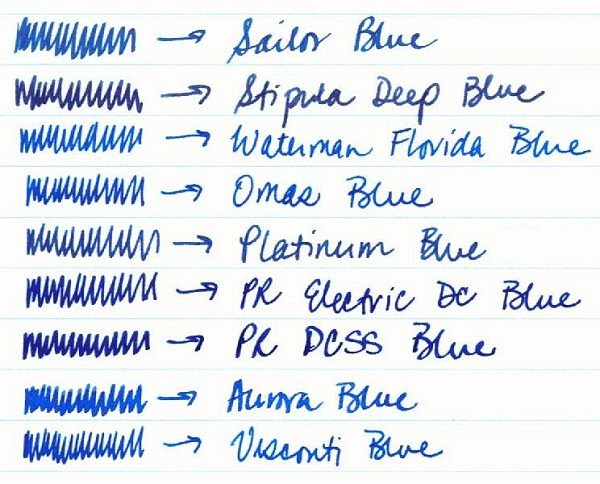 → Sailor Blue
→ Stipula Deep Blue
→ Waterman Florida Blue
→ Omas Blue
→ Platinum Blue
→ PR Electric DC Blue
→ PR DCSS Blue
→ Aurora Blue
→ Visconti Blue